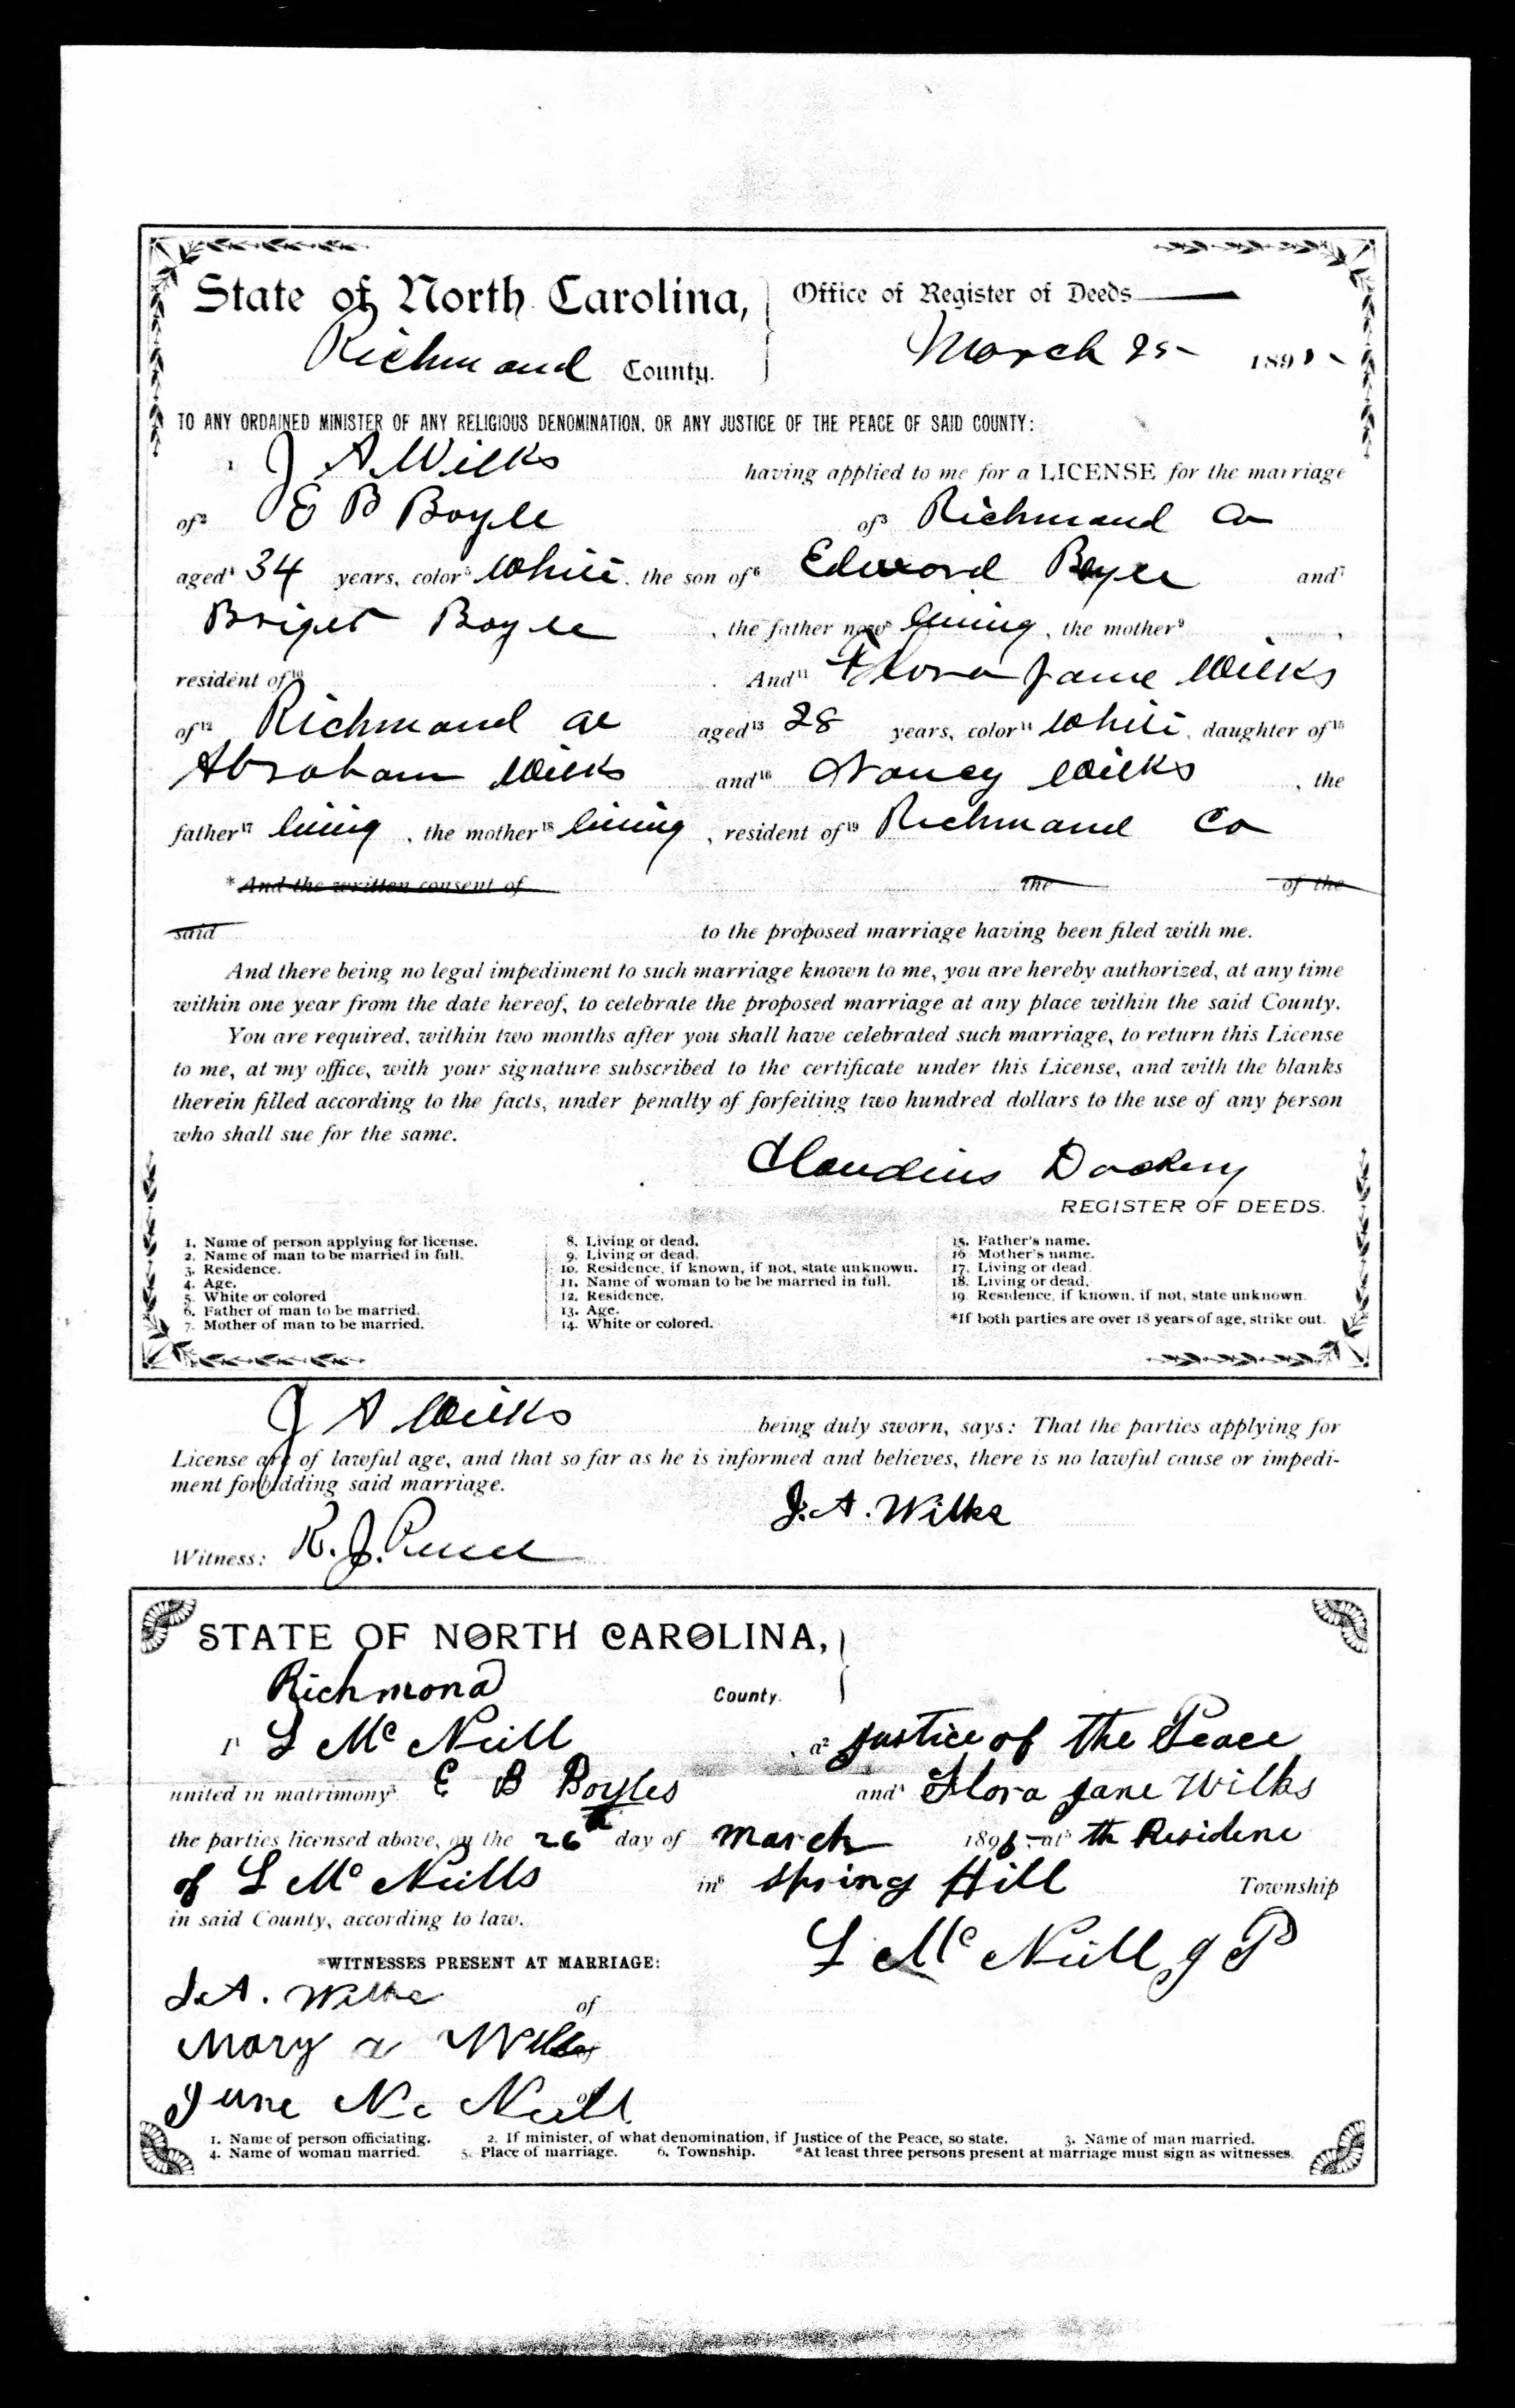 State of North Carolina, Office of Register of Deeds
Richmond County. March 25 189
TO ANY ORDAINED MINISTER OF ANY RELIGIOUS DENOMINATION, OR ANY JUSTICE OF THE PEACE OF SAID COUNTY:
1 J A. Wilks having applied to me for a LICENSE for the marriage
of2 E B Boyle of3 Richmond Co
aged4 34 years, color5 White, the son of6 Edward Boyle and7
Briget Boyle, the father now8 living, the mother9 ,
resident of10 . And11 Flora Jane Wilks
of12 Richmond Co aged13 28 years, color14 White, daughter of15
Abraham Wilks and16 Nancy Wilks, the
father17 living, the mother18 living, resident of19 Richmond Co
*And the written consent of the of the
said to the proposed marriage having been filed with me.
And there being no legal impediment to such marriage known to me, you are hereby authorized, at any time
within one year from the date hereof, to celebrate the proposed marriage at any place within the said County.
You are required, within two months after you shall have celebrated such marriage, to return this License
to me, at my office, with your signature subscribed to the certificate under this License, and with the blanks
therein filled according to the facts, under penalty of forfeiting two hundred dollars to the use of any person
who shall sue for the same.
Claudius Dockery
REGISTER OF DEEDS.
1. Name of person applying for license. 8. Living or dead. 15. Father's name.
2. Name of man to be married in full. 9. Living or dead. 16 Mother's name.
3. Residence. 10. Residence, if known, if not, state unknown. 17. Living or dead.
4. Age. 11. Name of woman to be be married in full. 18. Living or dead.
5. White or colored 12. Residence. 19. Residence, if known, if not, state unknown.
6. Father of man to be married. 13. Age.
7. Mother of man to be married. 14. White or colored. *If both parties are over 18 years of age, strike out.
J A Wilks being duly sworn, says: That the parties applying for
License are of lawful age, and that so far as he is informed and believes, there is no lawful cause or impedi-
ment forbidding said marriage.
J. A. Wilks
Witness: R. J.
STATE OF NORTH CAROLINA,
Richmond County.
I1 L Mc Neill, a2 Justice of the Peace
united in matrimony3 E B Boyles and4 Flora Jane Wilks
the parties licensed above, on the 26th day of March 189 at5 th Residenc
of L Mc Neills in6 Spring Hill Township
in said County, according to law.
L Mc Neill J P
*WITNESSES PRESENT AT MARRIAGE:
J. A. Wilks of
Mary a Wilks of
June Mc Neill of
1. Name of person officiating. 2. If minister, of what denomination, if Justice of the Peace, so state. 3. Name of man married.
4. Name of woman married. 5. Place of marriage. 6. Township. *At least three persons present at marriage must sign as witnesses.